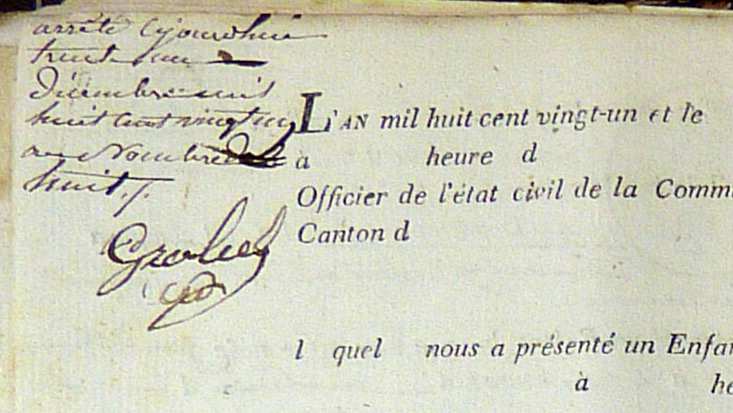 arrêté ajourdhuic
trent un
Décembre mil
huit cent vingt un
au Nombre de
huit
L'AN mil huit cent vingt-un et le
à heure d
Officier de l'état civil de la Comm
Canton d
l quel nous a présenté un Enfan
à he